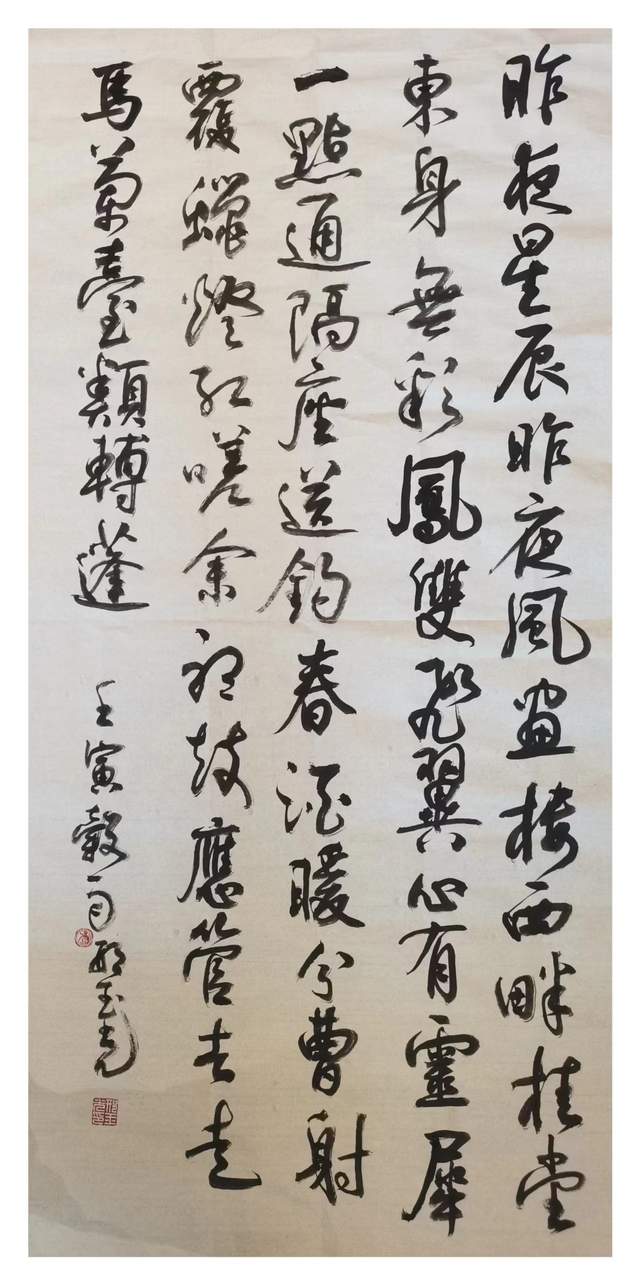 昨夜星辰昨夜風畫楼西畔桂堂
東身無彩鳳雙飛翼心有靈犀
一點通隔座送鈎春酒暖分曹射
覆蠟燈紅嗟余聽鼓應管去走
馬蘭臺類轉蓬
壬寅穀雨